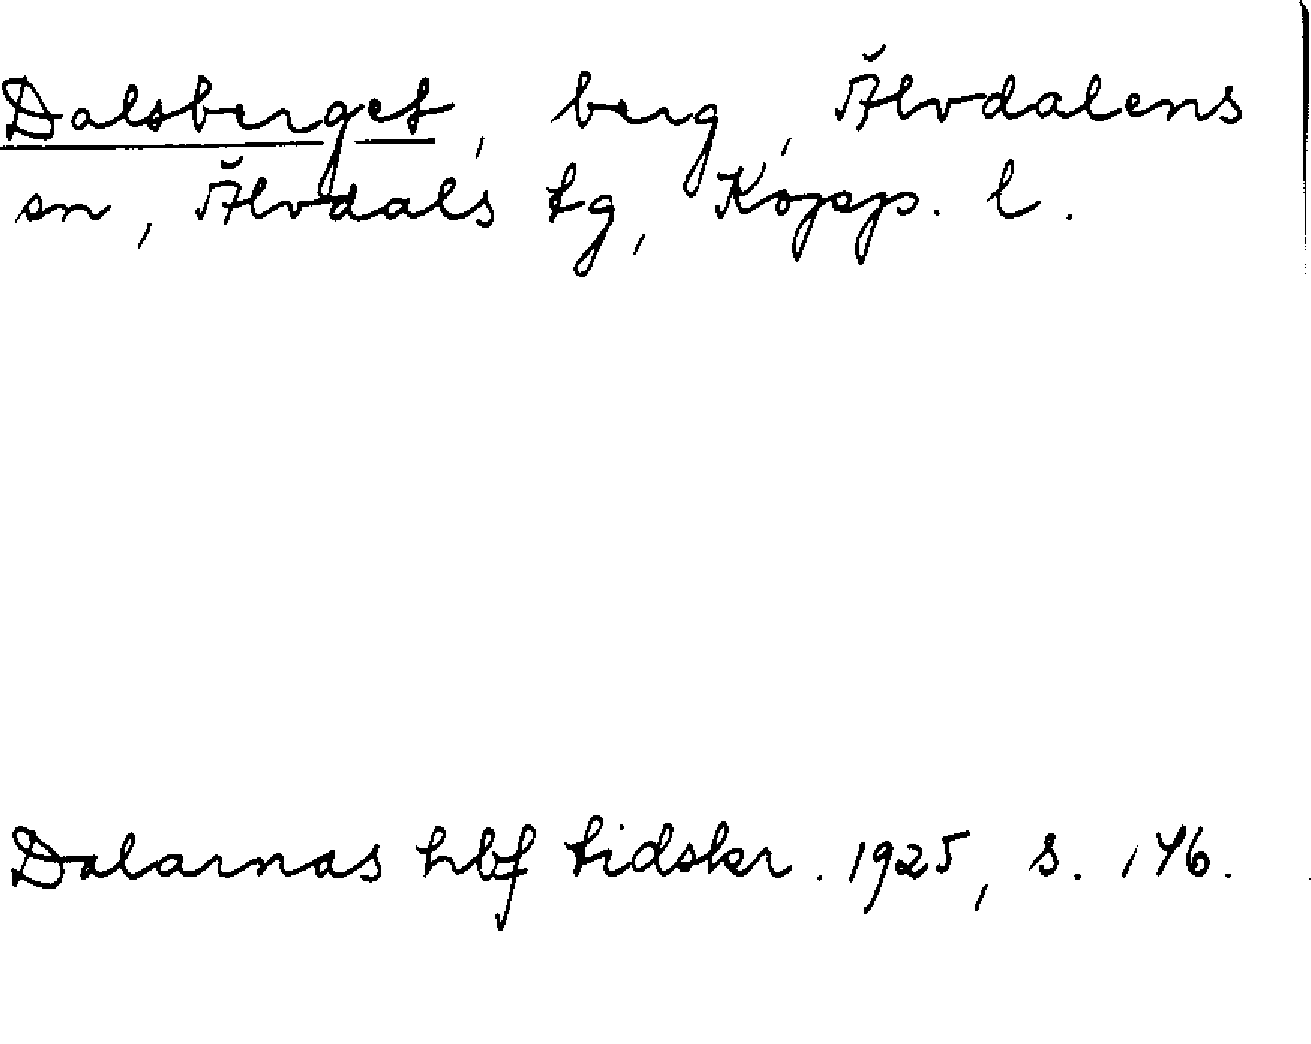 Dalsberget, berg, Älvdalens
sn, Älvdals tg, Kopp. l.
Dalarnas hbf tidskr. 1925, s. 146.